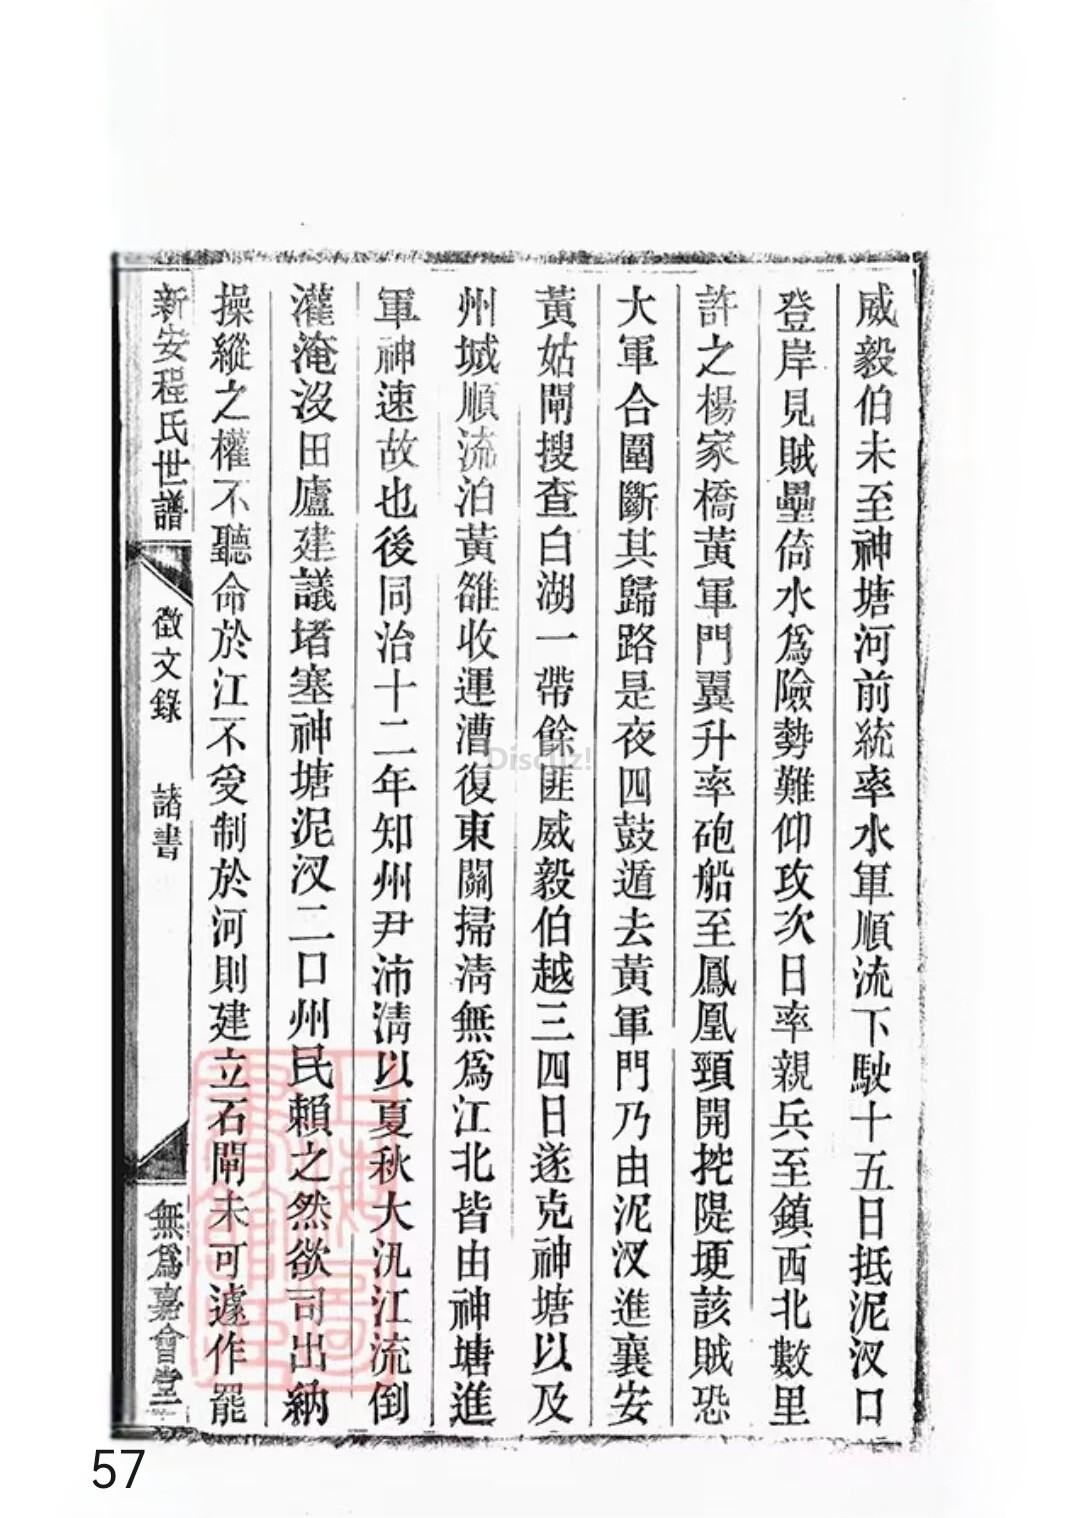 威毅伯未至神塘河前統率水軍順流下駛十五日抵泥汊口
登岸見賊壘倚水爲險勢難仰攻次日率親兵至鎮西北數里
許之楊家橋黃軍門翼升率砲船至鳳凰頸開挖隄埂該賊恐
大軍合圍斷其歸路是夜四鼓遁去黃軍門乃由泥汊進襄安
黃姑閘搜查白湖一帶餘匪威毅伯越三四日遂克神塘以及
州城順流泊黃雒收運漕復東關掃淸無爲江北皆由神塘進
軍神速故也後同治十二年知州尹沛淸以夏秋大汛江流倒
灌淹沒田廬建議堵塞神塘泥汊二口州民賴之然欲司出納
操縱之權不聽命於江不受制於河則建立石閘未可遽作罷
新安程氏世譜 徵文錄 諸書 無爲嘉會堂
Discuz!
57